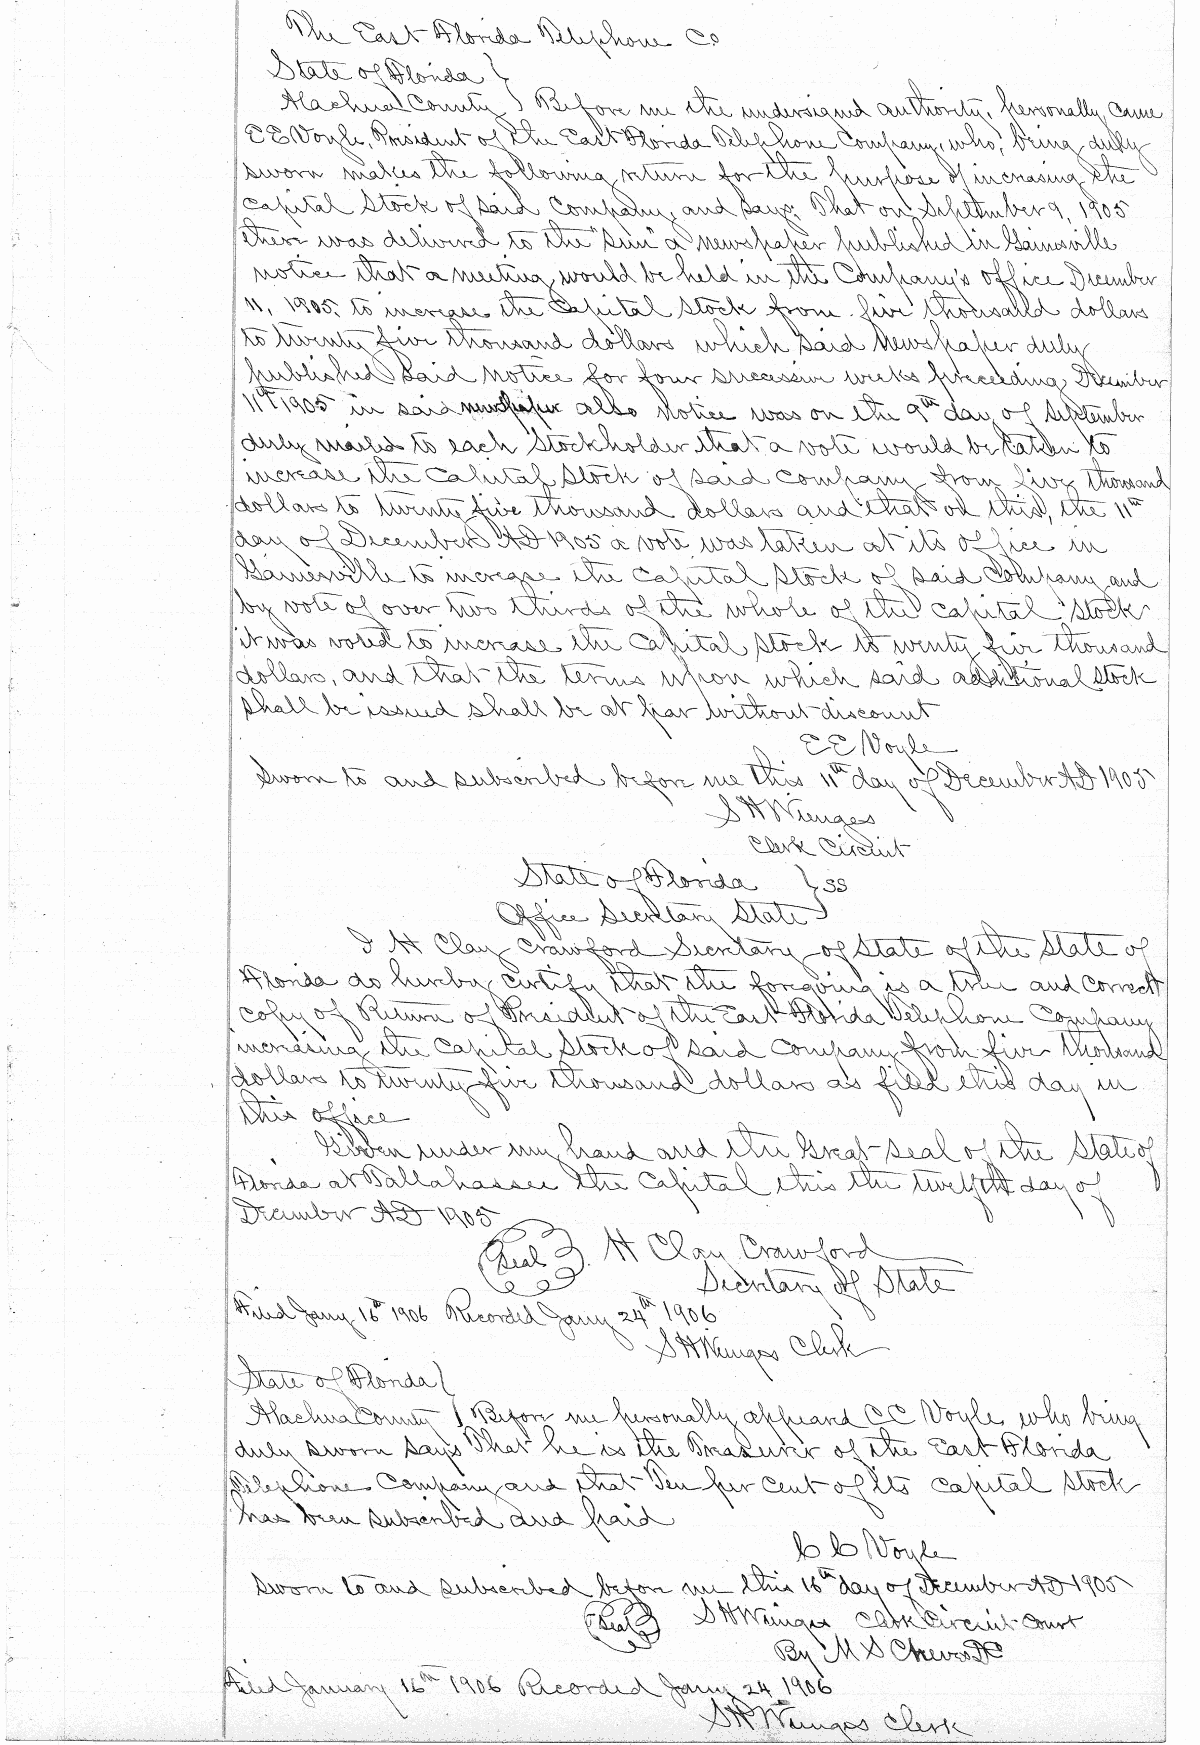 The East Florida Telephone Co
State of Florida }
Alachua County } Before me the undersigned authority, personally came
E E Voyle, President of the East Florida Telephone Company, who, being duly
sworn makes the following return for the purpose of increasing the
Capital Stock of said Company, and says; That on September 9, 1905
there was delivered to the "Sun" a newspaper published in Gainesville
notice that a meeting would be held in the Company's office December
11, 1905, to increase the Capital Stock from five thousand dollars
to twenty five thousand dollars which said newspaper duly
published said notice for four successive weeks preceeding December
11th 1905 in said newspaper also notice was on the 9th day of September
duly mailed to each Stockholder that a vote would be taken to
increase the Capital Stock of said Company from five thousand
dollars to twenty five thousand dollars and that on this, the 11th
day of December AD 1905 a vote was taken at its office in
Gainesville to increase the Capital Stock of said Company and
by vote of over two thirds of the whole of the capital stock
it was voted to increase the Capital Stock to twenty five thousand
dollars, and that the terms upon which said additional stock
shall be issued shall be at par without discount
E E Voyle
Sworn to and subscribed before me this 11th day of December AD 1905
S H Wienges
Clerk Circuit
State of Florida } ss
Office Secretary State }
I H Clay Crawford Secretary of State of the State of
Florida do hereby certify that the foregoing is a true and correct
copy of Return of President of the East Florida Telephone Company
increasing the Capital Stock of said Company from five thousand
dollars to twenty five thousand dollars as filed this day in
this office
Given under my hand and the Great seal of the State of
Florida at Tallahassee the Capital this the twelfth day of
December AD 1905
Seal H Clay Crawford
Secretary of State
Filed Jany 16th 1906 Recorded Jany 24th 1906
S H Wienges Clerk
State of Florida }
Alachua County } Before me personally appeard C C Voyle who being
duly sworn says That he is the Treasurer of the East Florida
Telephone Company and that Ten per cent of its capital stock
has been subscribed and paid
C C Voyle
Sworn to and subscribed before me this 16th day of December AD 1905
Seal S H Wienges Clerk Circuit Court
By M S Cheves DC
Filed January 16th 1906 Recorded Jany 24 1906
S H Wienges Clerk